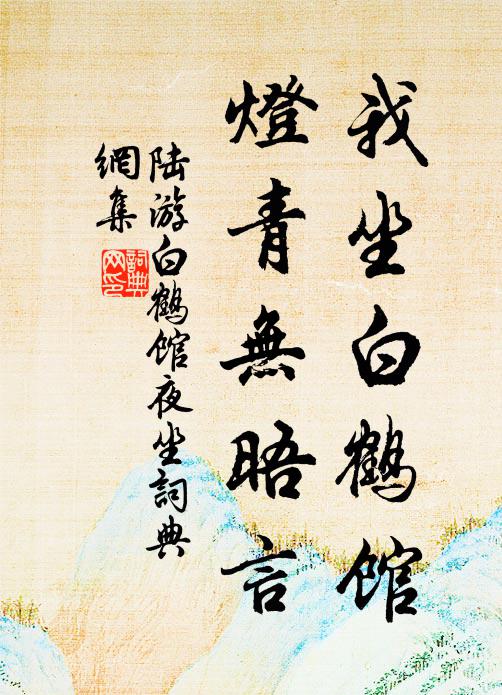 我坐白鶴館
燈青無晤言
陆游白鶴馆夜坐詞典
網集
詞典
网印